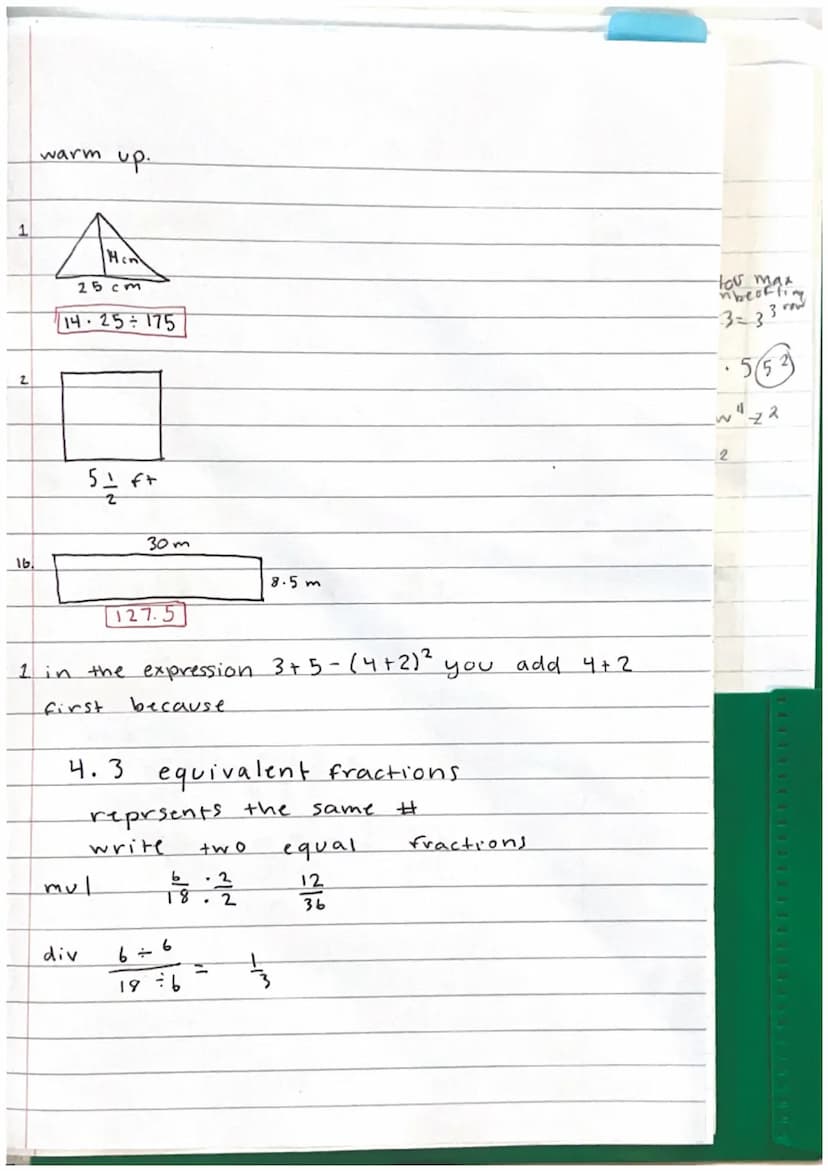 warm up.
1
14 cm
25 cm
14 · 25 ÷ 175
2
5 1/2 ft
30 m
16.
8.5 m
127.5
1 in the expression 3+5-(4+2)² you add 4+2
first because
4.3 equivalent fractions
reprsents the same #
write two equal fractions
mul 6/18 · 2/2 12/36
div 6÷6/18÷6 = 1/3
max
3=3³
· 5 5²
2